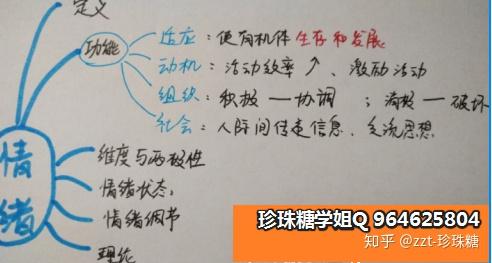 定义
功能
适应：使有机体生存和发展
动机：活动效率↑、激励活动
组织：积极—协调；消极—破坏
社会：人际间传递信息、交流思想
情绪
维度与两极性
情绪状态；
情绪调节
理论
珍珠糖学姐Q 964625804
知乎 @zzt-珍珠糖